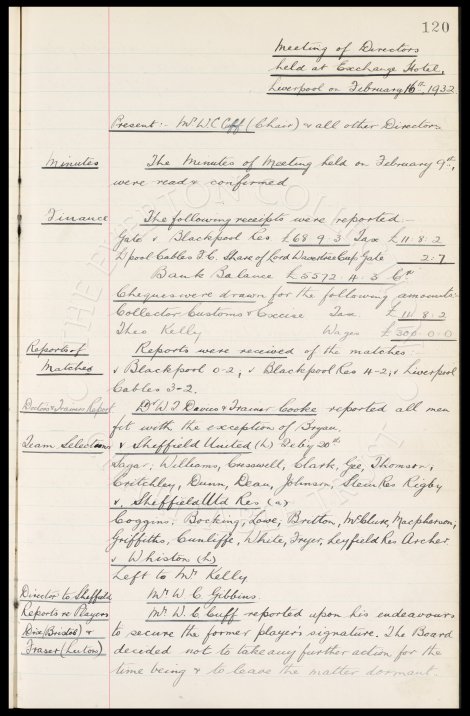 120
Meeting of Directors
held at Exchange Hotel,
Liverpool on February 16th, 1932
Present:- Mr W.C. Cuff (Chair) & all other Directors
Minutes The Minutes of Meeting held on February 9th,
were read & confirmed
Finance The following receipts were reported:-
Gate v Blackpool Res £68. 9. 3 Tax £11. 8. 2
L'pool Cables F.C. Share of Lord Wavertree Cup Gate 2: 7
Bank Balance £5572. 4. 3 Cr
Cheques were drawn for the following amounts:-
Collector Customs & Excise Tax. £11. 8. 2
Theo Kelly Wages £300. 0. 0
Reports of Reports were received of the matches:-
Matches v Blackpool 0-2; v Blackpool Res 4-2; v Liverpool
Cables 3-2.
Doctors & Trainers Report Dr W J Davies & Trainer Cooke reported all men
fit with the exception of Bryan.
Team Selections v Sheffield United (h) Feby 20th
Sagar; Williams, Cresswell, Clark, Gee, Thomson,
Critchley, Dunn, Dean, Johnson, Stein Res Rigby
v. Sheffield Utd Res (a)
Coggins; Bocking, Lowe, Britton, McClure, Macpherson,
Griffiths, Cunliffe, White, Fryer, Leyfield Res Archer
v Whiston (h)
Left to Mr Kelly
Director to Sheffield Mr W. C. Gibbins.
Reports re Players Mr W. C. Cuff reported upon his endeavours
Dix (Bristol) & to secure the former player's signature. The Board
Fraser (Luton) decided not to take any further action for the
time being & to leave the matter dormant.